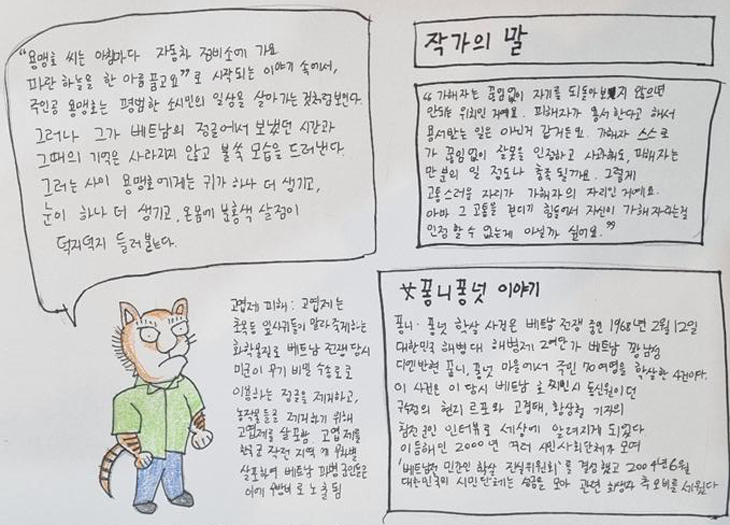 "용맹호 씨는 아침마다 자동차 정비소에 가요
파란 하늘을 한 아름 품고요"로 시작되는 이야기 속에서,
주인공 용맹호는 평범한 소시민의 일상을 살아가는 것처럼 보인다.
그러나 그가 베트남의 정글에서 보냈던 시간과
그때의 기억은 사라지지 않고 불쑥 모습을 드러낸다.
그러는 사이 용맹호에게는 귀가 하나 더 생기고,
눈이 하나 더 생기고, 온몸에 분홍색 살점이
덕지덕지 들러붙는다.
작가의 말
"가해자는 끊임없이 자기를 되돌아보지 않으면
안되는 위치인 거예요. 피해자가 용서한다고 해서
용서받는 일은 아닌거 같거든요. 가해자 스스로
가 끊임없이 잘못을 인정하고 사과해도, 피해자는
만 분의 일 정도나 충족 될까요. 그렇게
고통스러운 자리가 가해자의 자리인 거예요.
아마 그 고통을 견디기 힘들어서 자신이 가해자라는걸
인정할 수 없는게 아닐까 싶어요."
고엽제 피해: 고엽제는
초목등 잎사귀들이 말라죽게하는
화학물질로 베트남 전쟁 당시
미군이 무기 비밀 수송로로
이용하는 정글을 제거하고,
농작물들을 제거하기 위해
고엽제를 살포함. 고엽제를
한국군 작전 지역에 무차별
살포하여 베트남 파병 군인들은
이에 무방비로 노출됨
퐁니퐁넛 이야기
퐁니·퐁넛 학살 사건은 베트남 전쟁 중인 1968년 2월 12일
대한민국 해병대 해병제 2여단가 베트남 꽝남성
디엔반현 퐁니, 퐁넛 마을에서 주민 70여명을 학살한 사건이다.
이 사건은 이 당시 베트남 호찌민시 통신원이던
구수정의 현지 르포와 고경태, 황상철 기자의
참전군인 인터뷰로 세상에 알려지게 되었다
이듬해인 2000년 여러 시민사회단체가 모여
'베트남전 민간인 학살 진실위원회'를 결성했고 2004년 6월
대한민국의 시민단체는 성금을 모아 관련 희생자 추모비를 세웠다